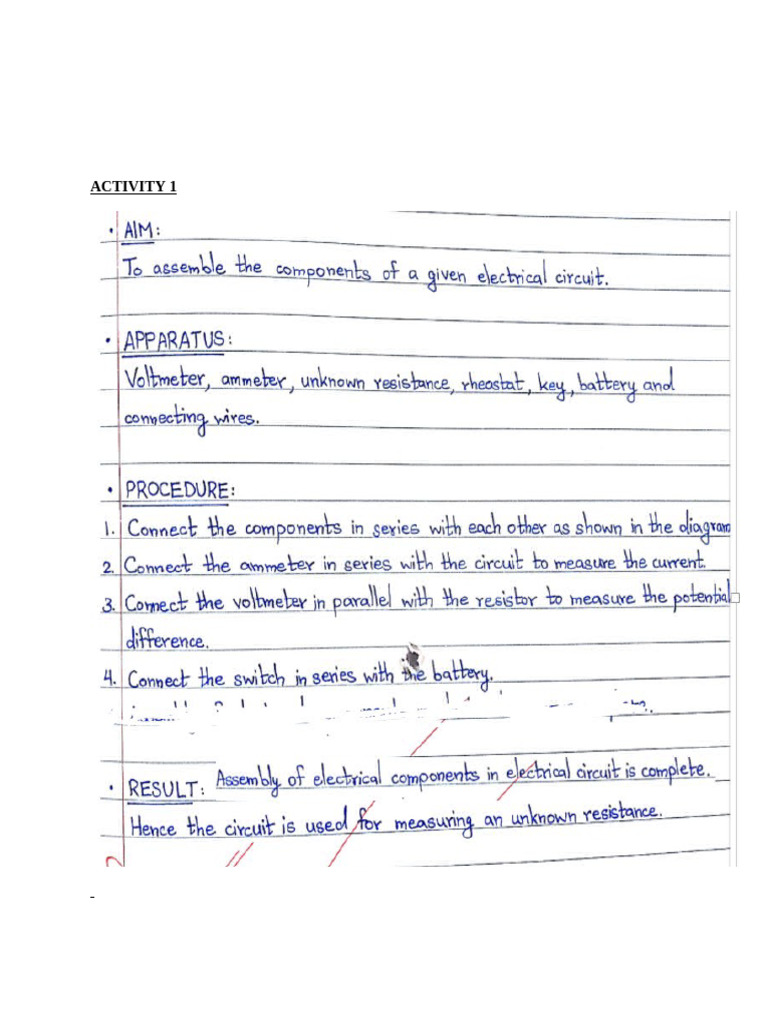 ACTIVITY 1
• AIM:
To assemble the components of a given electrical circuit.
• APPARATUS:
Voltmeter, ammeter, unknown resistance, rheostat, key, battery and
connecting wires.
• PROCEDURE:
1. Connect the components in series with each other as shown in the diagram
2. Connect the ammeter in series with the circuit to measure the current.
3. Connect the voltmeter in parallel with the resistor to measure the potential
difference.
4. Connect the switch in series with the battery.
• RESULT: Assembly of electrical components in electrical circuit is complete.
Hence the circuit is used for measuring an unknown resistance.
-